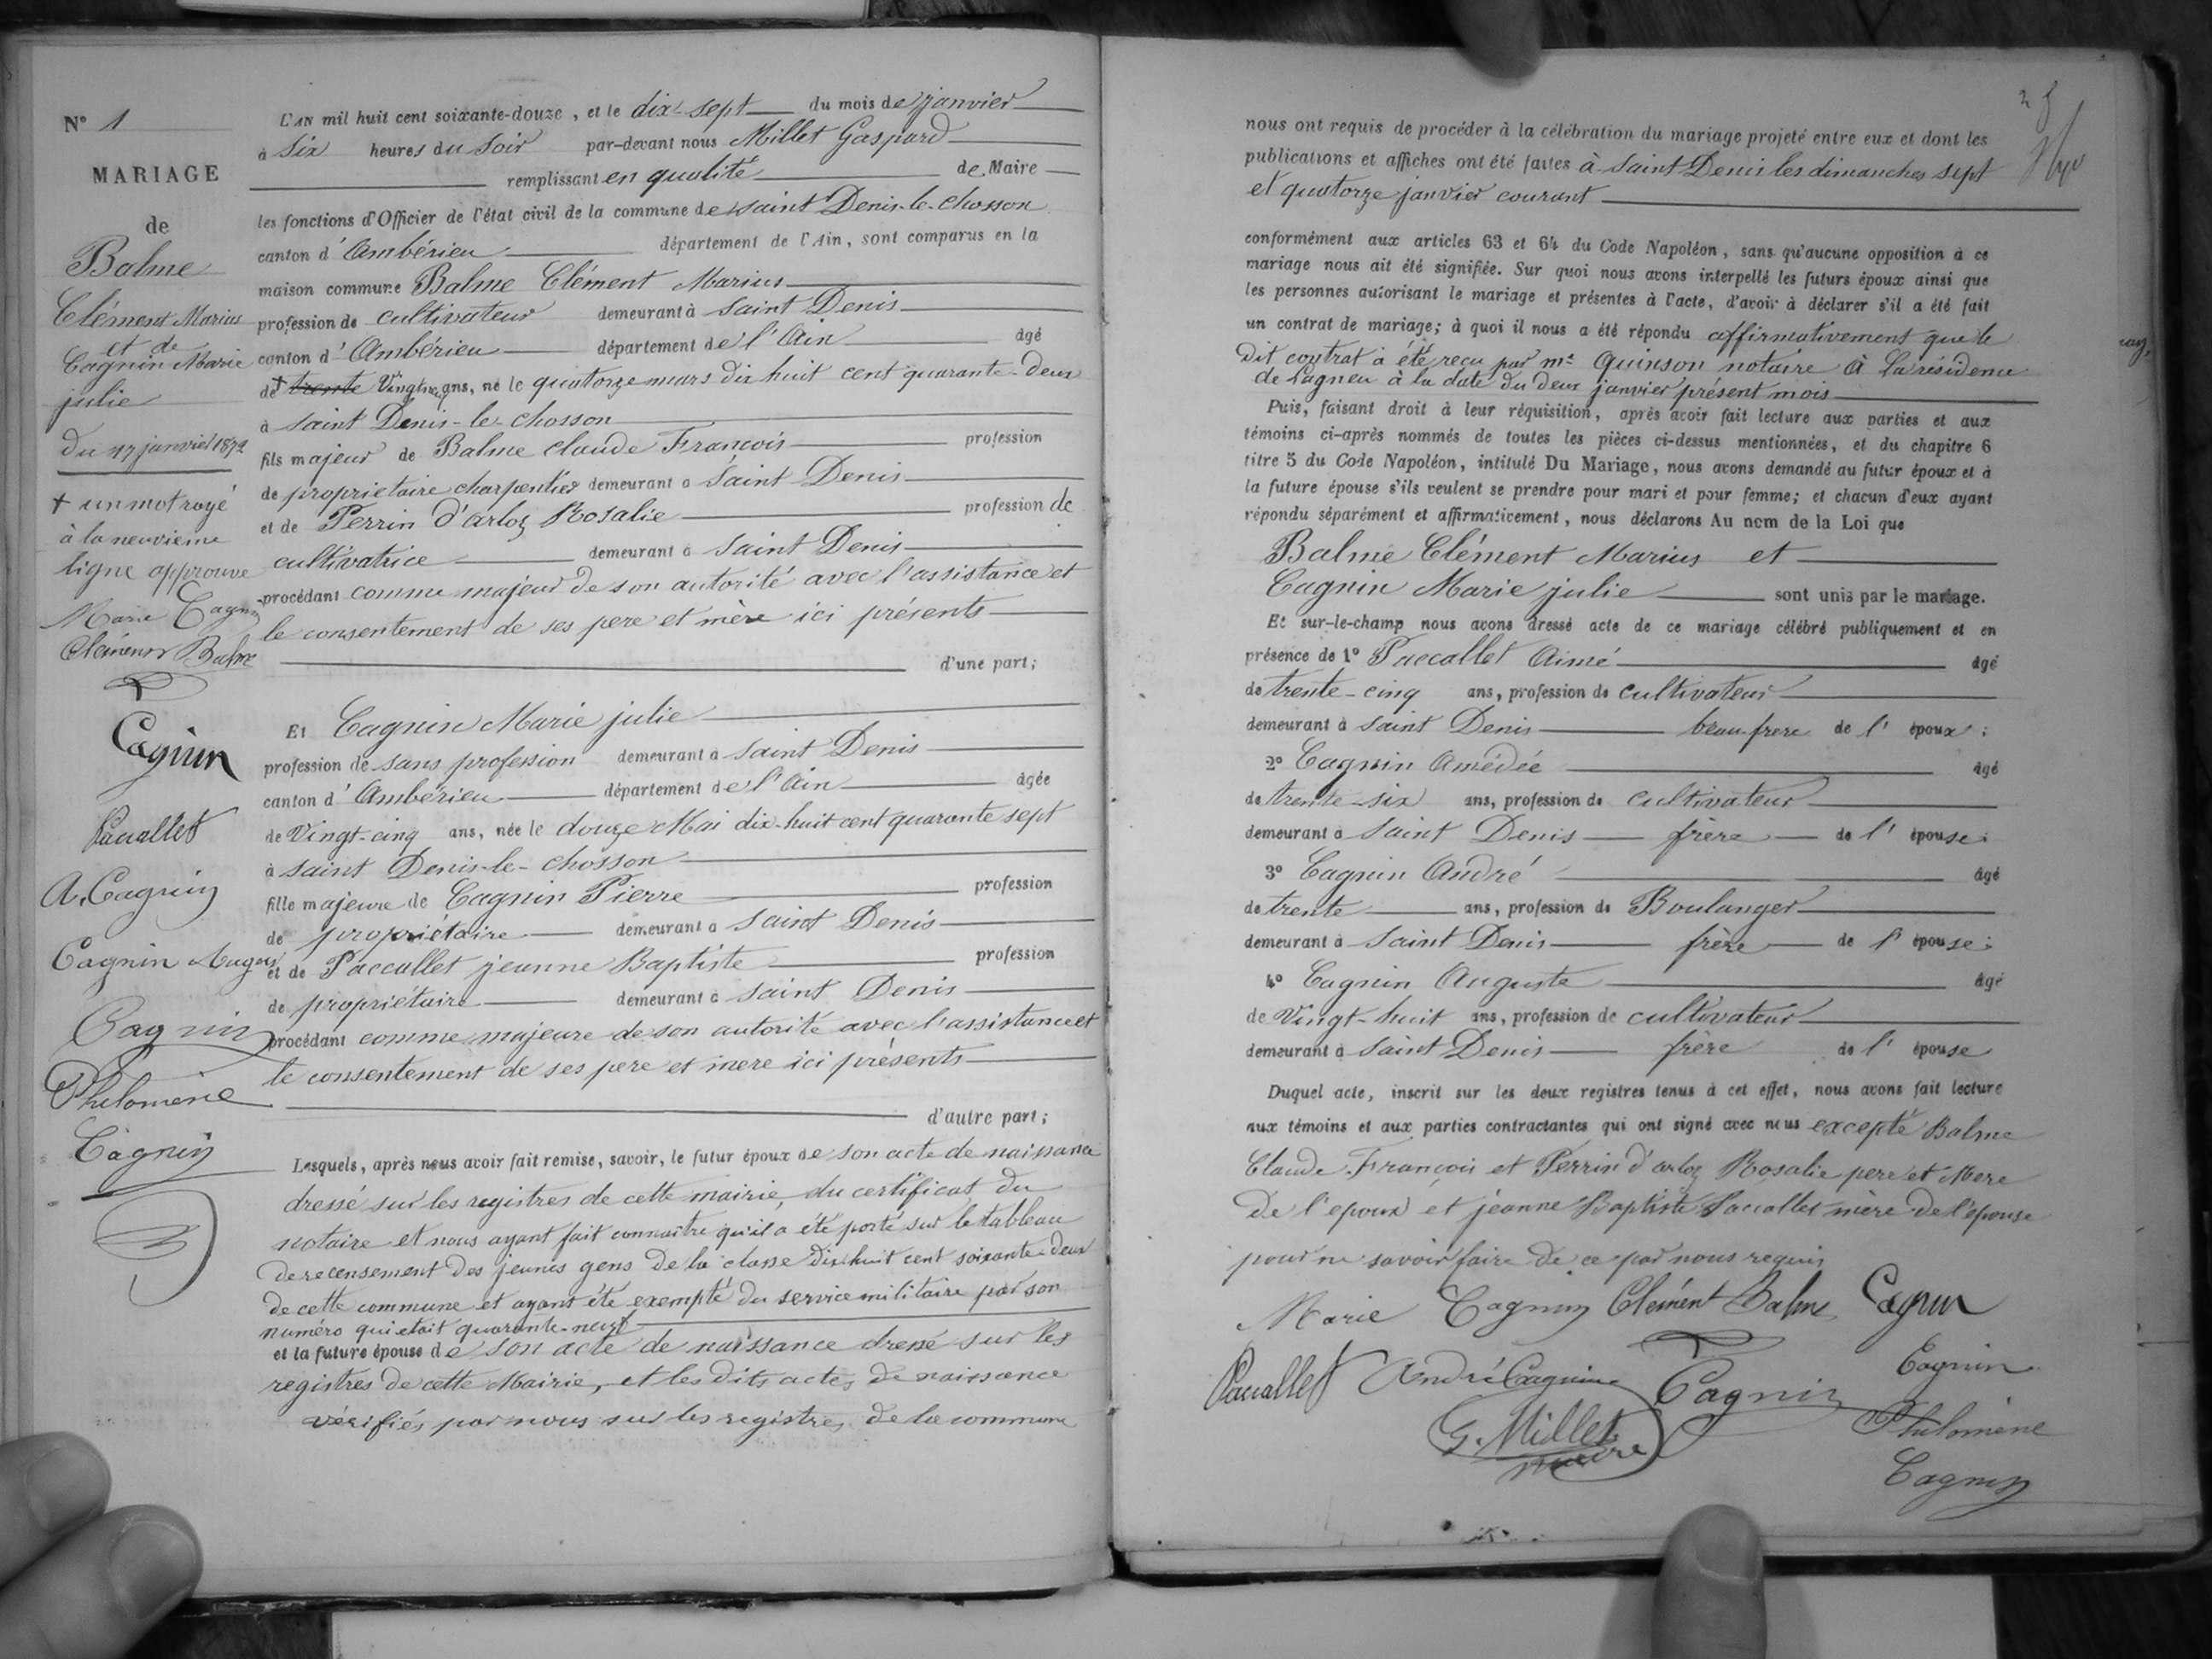 N° 1
MARIAGE
de
Balme
Clément Marius
et de
Cagnin Marie
julie
du 17 janvier 1872
+ un mot rayé
à la neuvieme
ligne approuvé
Marie Cagnin
Clément Balme
Cagnin
Paccallet
A. Cagnin
Cagnin August
Cagnin
Philomène
Cagnin
L'AN mil huit cent soixante-douze, et le dix-sept du mois de janvier
à six heures du soir par-devant nous Millet Gaspard
remplissant en qualité de Maire
les fonctions d'Officier de l'état civil de la commune de saint Denis-le-chosson
canton d'Ambérieu département de l'Ain, sont comparus en la
maison commune Balme Clément Marius
profession de cultivateur demeurant à saint Denis
canton d'Ambérieu département de l'Ain âgé
de + trente Vingt-neuf ans, né le quatorze mars dix huit cent quarante-deux
à saint Denis-le-chosson
fils majeur de Balme claude François profession
de proprietaire charpentier demeurant à saint Denis
et de Perrin d'arloz Rosalie profession de
cultivatrice demeurant à saint Denis
procédant comme majeur de son autorité avec l'assistance et
le consentement de ses pere et mère ici présents
d'une part;
Et Cagnin Marie julie
profession de sans profession demeurant à saint Denis
canton d'Ambérieu département de l'Ain âgée
de Vingt-cinq ans, née le douze Mai dix-huit cent quarante sept
à saint Denis-le-chosson
fille majeure de Cagnin Pierre profession
de propriétaire demeurant à saint Denis
et de Paccallet jeanne Baptiste profession
de propriétaire demeurant à saint Denis
procédant comme majeure de son autorité avec l'assistance et
le consentement de ses pere et mere ici présents
d'autre part;
Lesquels, après nous avoir fait remise, savoir, le futur époux de son acte de naissance
dressé sur les registres de cette mairie, du certificat du
notaire et nous ayant fait connaitre qu'il a été porté sur le tableau
de recensement des jeunes gens de la classe dix huit cent soixante-deux
de cette commune et ayant été exempté du service militaire par son
numéro qui etait quarante-neuf
et la future épouse de son acte de naissance dressé sur les
registres de cette Mairie, et les dits actes de naissance
vérifiés par nous sur les registres de la commune
nous ont requis de procéder à la célébration du mariage projeté entre eux et dont les
publications et affiches ont été faites à saint Denis les dimanches sept
et quatorze janvier courant
conformément aux articles 63 et 64 du Code Napoléon, sans qu'aucune opposition à ce
mariage nous ait été signifiée. Sur quoi nous avons interpellé les futurs époux ainsi que
les personnes autorisant le mariage et présentes à l'acte, d'avoir à déclarer s'il a été fait
un contrat de mariage; à quoi il nous a été répondu affirmativement que le
dit contrat a été reçu par Me Quinson notaire à la résidence
de Lagneu à la date du deux janvier présent mois
Puis, faisant droit à leur réquisition, après avoir fait lecture aux parties et aux
témoins ci-après nommés de toutes les pièces ci-dessus mentionnées, et du chapitre 6
titre 5 du Code Napoléon, intitulé Du Mariage, nous avons demandé au futur époux et à
la future épouse s'ils veulent se prendre pour mari et pour femme; et chacun d'eux ayant
répondu séparément et affirmaticement, nous déclarons Au nom de la Loi que
Balme Clément Marius et
Cagnin Marie julie sont unis par le mariage.
Et sur-le-champ nous avons dressé acte de ce mariage célébré publiquement et en
présence de 1° Paccallet Aimé âgé
de trente-cinq ans, profession de cultivateur
demeurant à saint Denis beau-frere de l'époux;
2° Cagnin Amédée âgé
de trente-six ans, profession de cultivateur
demeurant à saint Denis frère de l'épouse;
3° Cagnin André âgé
de trente ans, profession de Boulanger
demeurant à saint Denis frère de l'épouse;
4° Cagnin Auguste âgé
de Vingt-huit ans, profession de cultivateur
demeurant à saint Denis frère de l'épouse
Duquel acte, inscrit sur les deux registres tenus à cet effet, nous avons fait lecture
aux témoins et aux parties contractantes qui ont signé avec nous excepté Balme
Claude François et Perrin d'arloz Rosalie pere et Mere
de l'epoux et jeanne Baptiste Paccallet mère de l'épouse
pour ne savoir faire de ce par nous requis
Marie Cagnin Clément Balme Cagnin
Paccallet André Cagnin Cagnin Cagnin
G. Millet Philomène
maire Cagnin